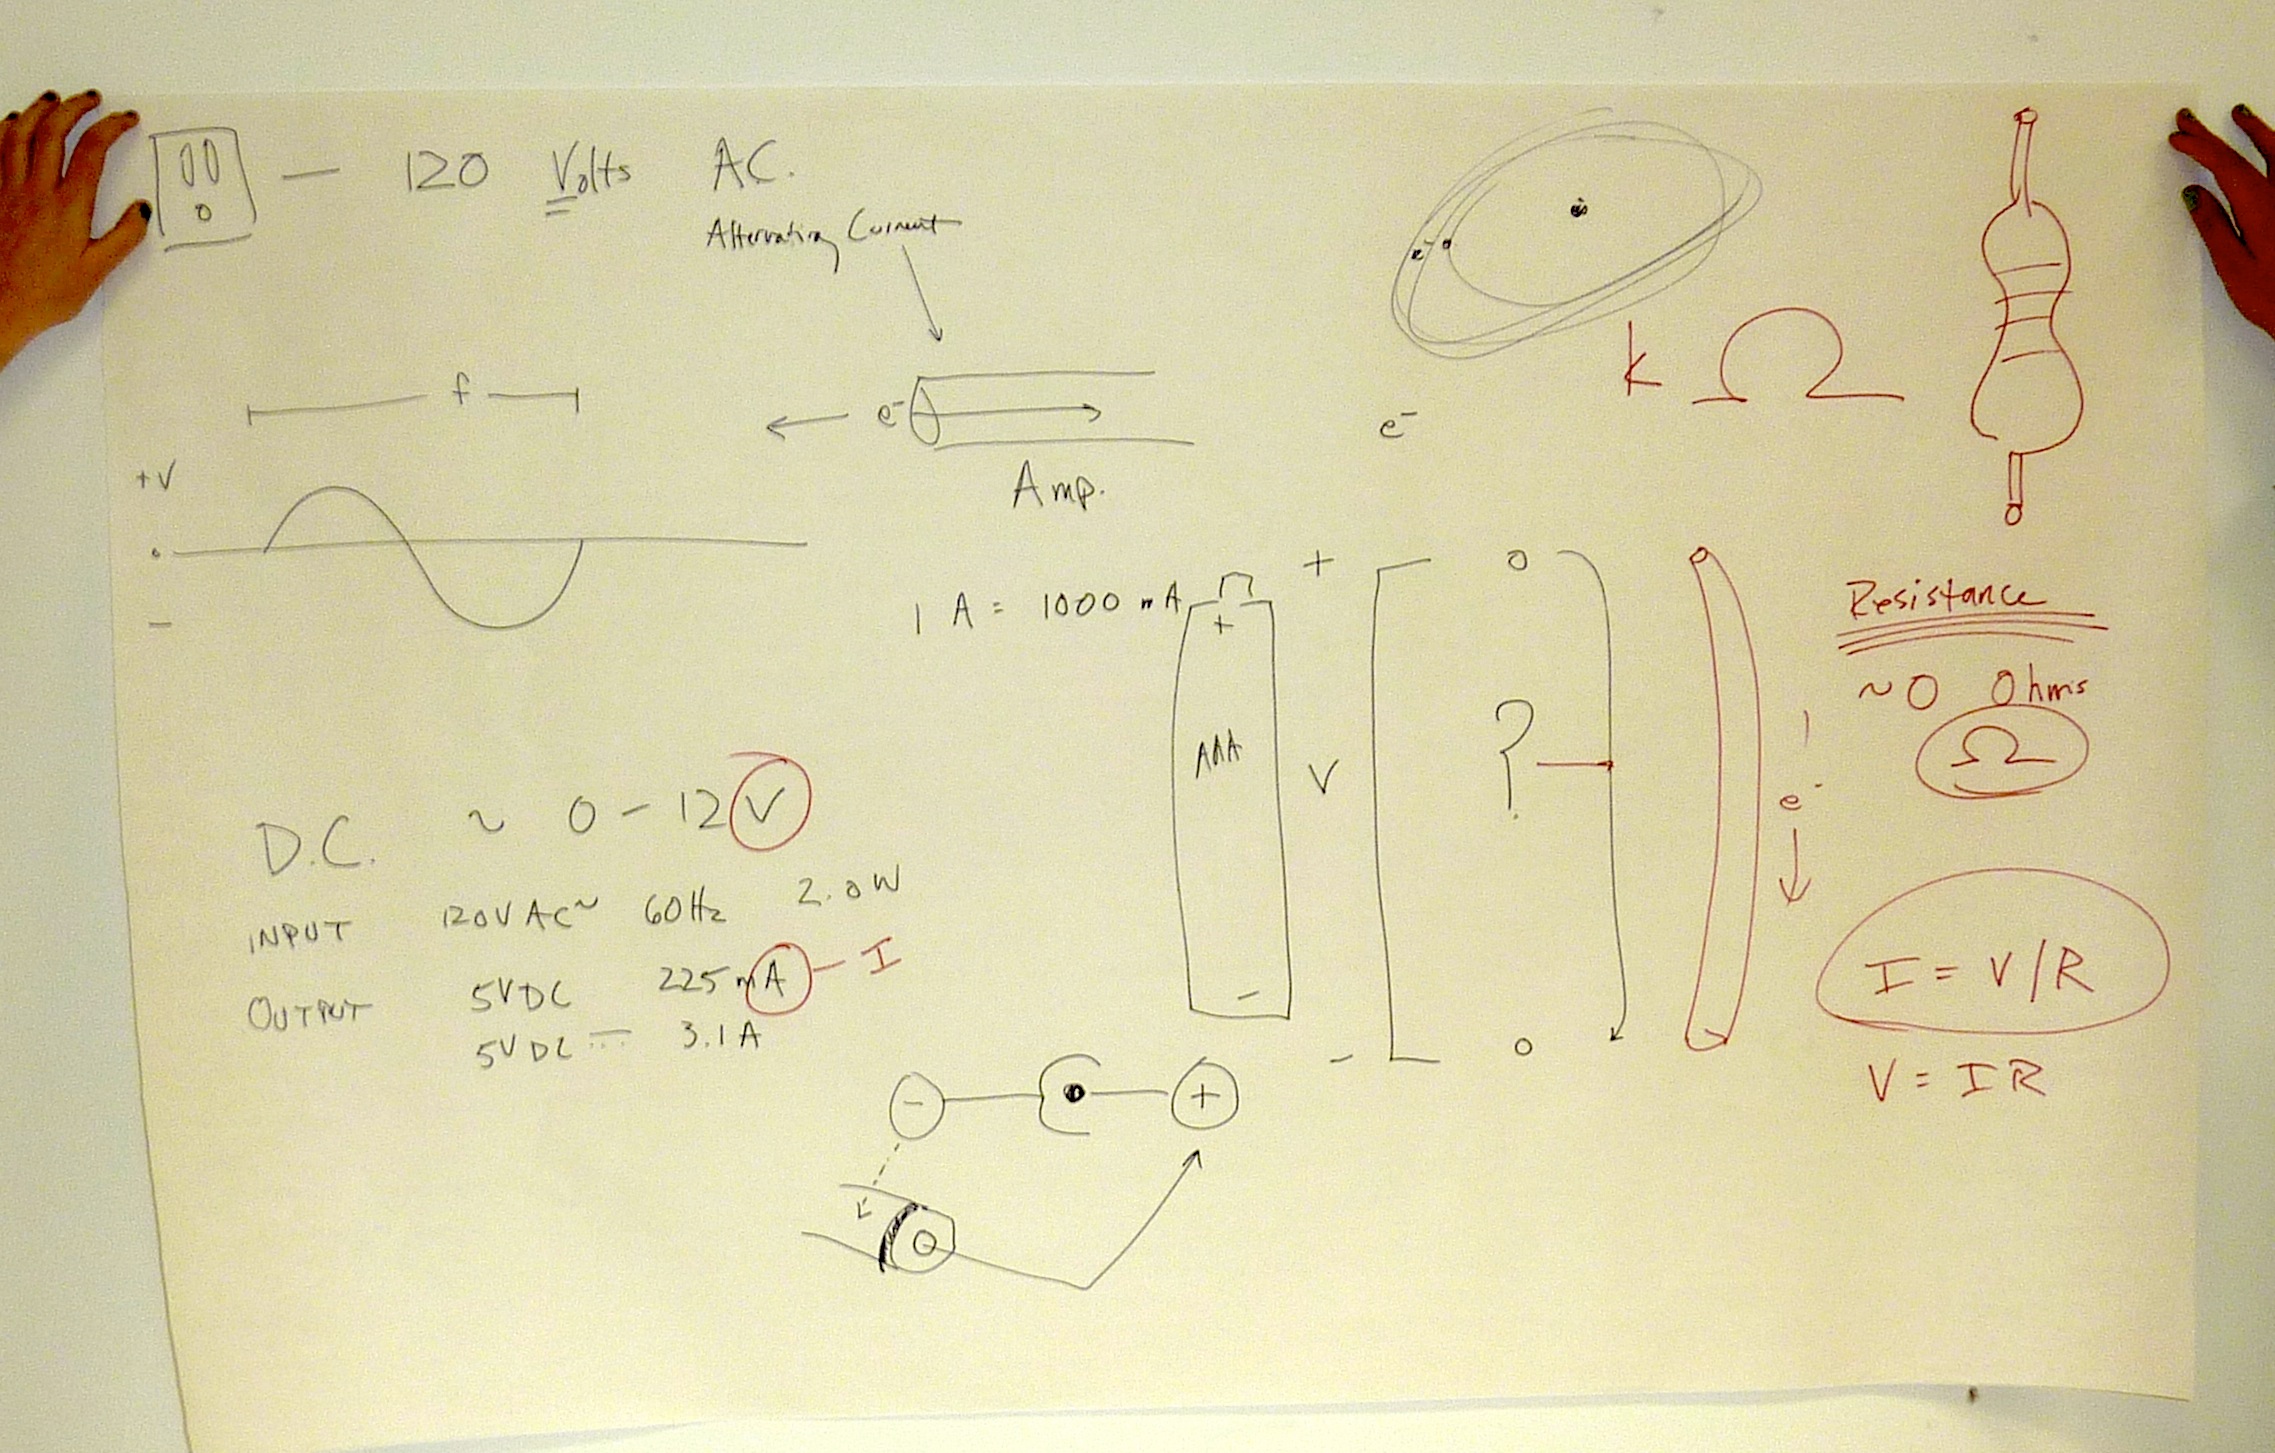 120 Volts AC.
Alternating Current
f
+V
o
−
e⁻
Amp.
e⁻
e⁻
k Ω
1 A = 1000 mA
+
AAA
−
+
V
−
o
?
o
e⁻
Resistance
~0 Ohms
Ω
I = V/R
V = IR
D.C. ~ 0 – 12 V
INPUT 120V AC~ 60Hz 2.0W
OUTPUT 5VDC 225mA – I
5VDC ⎓ 3.1A
− +